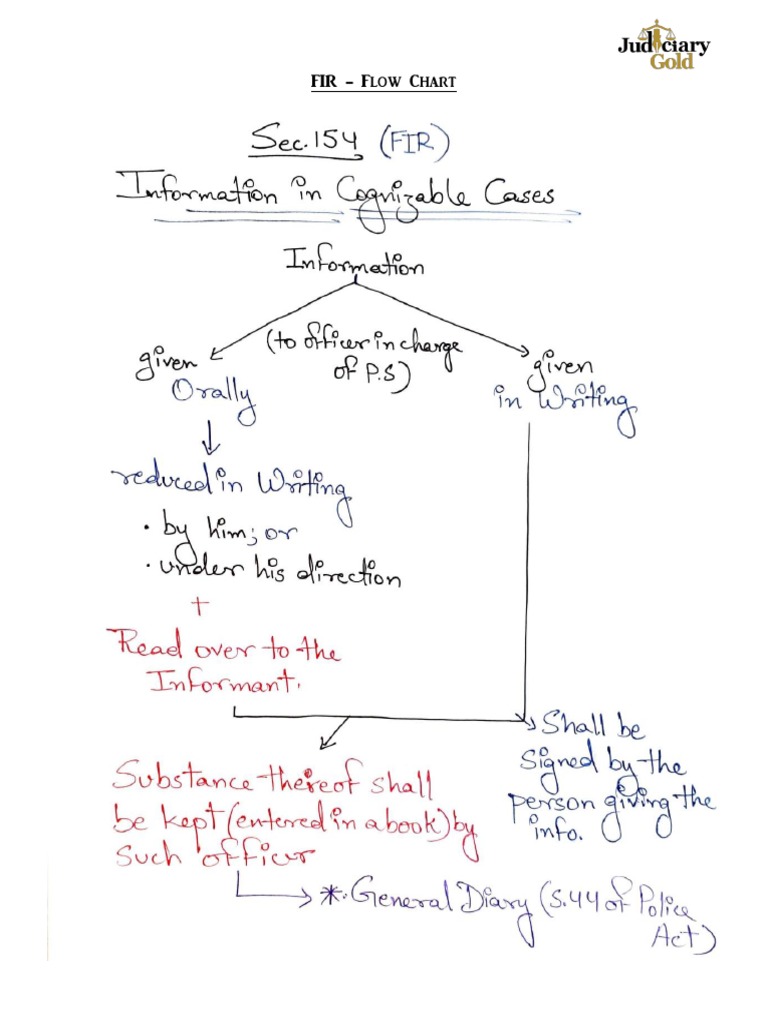 Judiciary
Gold
FIR – FLOW CHART
Sec.154 (FIR)
Information in Cognizable Cases
Information
(to officer in charge
of P.S)
given
Orally
given
in Writing
reduced in Writing
• by him; or
• under his direction
+
Read over to the
Informant.
Shall be
signed by the
person giving the
info.
Substance thereof shall
be kept (entered in a book) by
such officer
*. General Diary (S.44 of Police
Act)